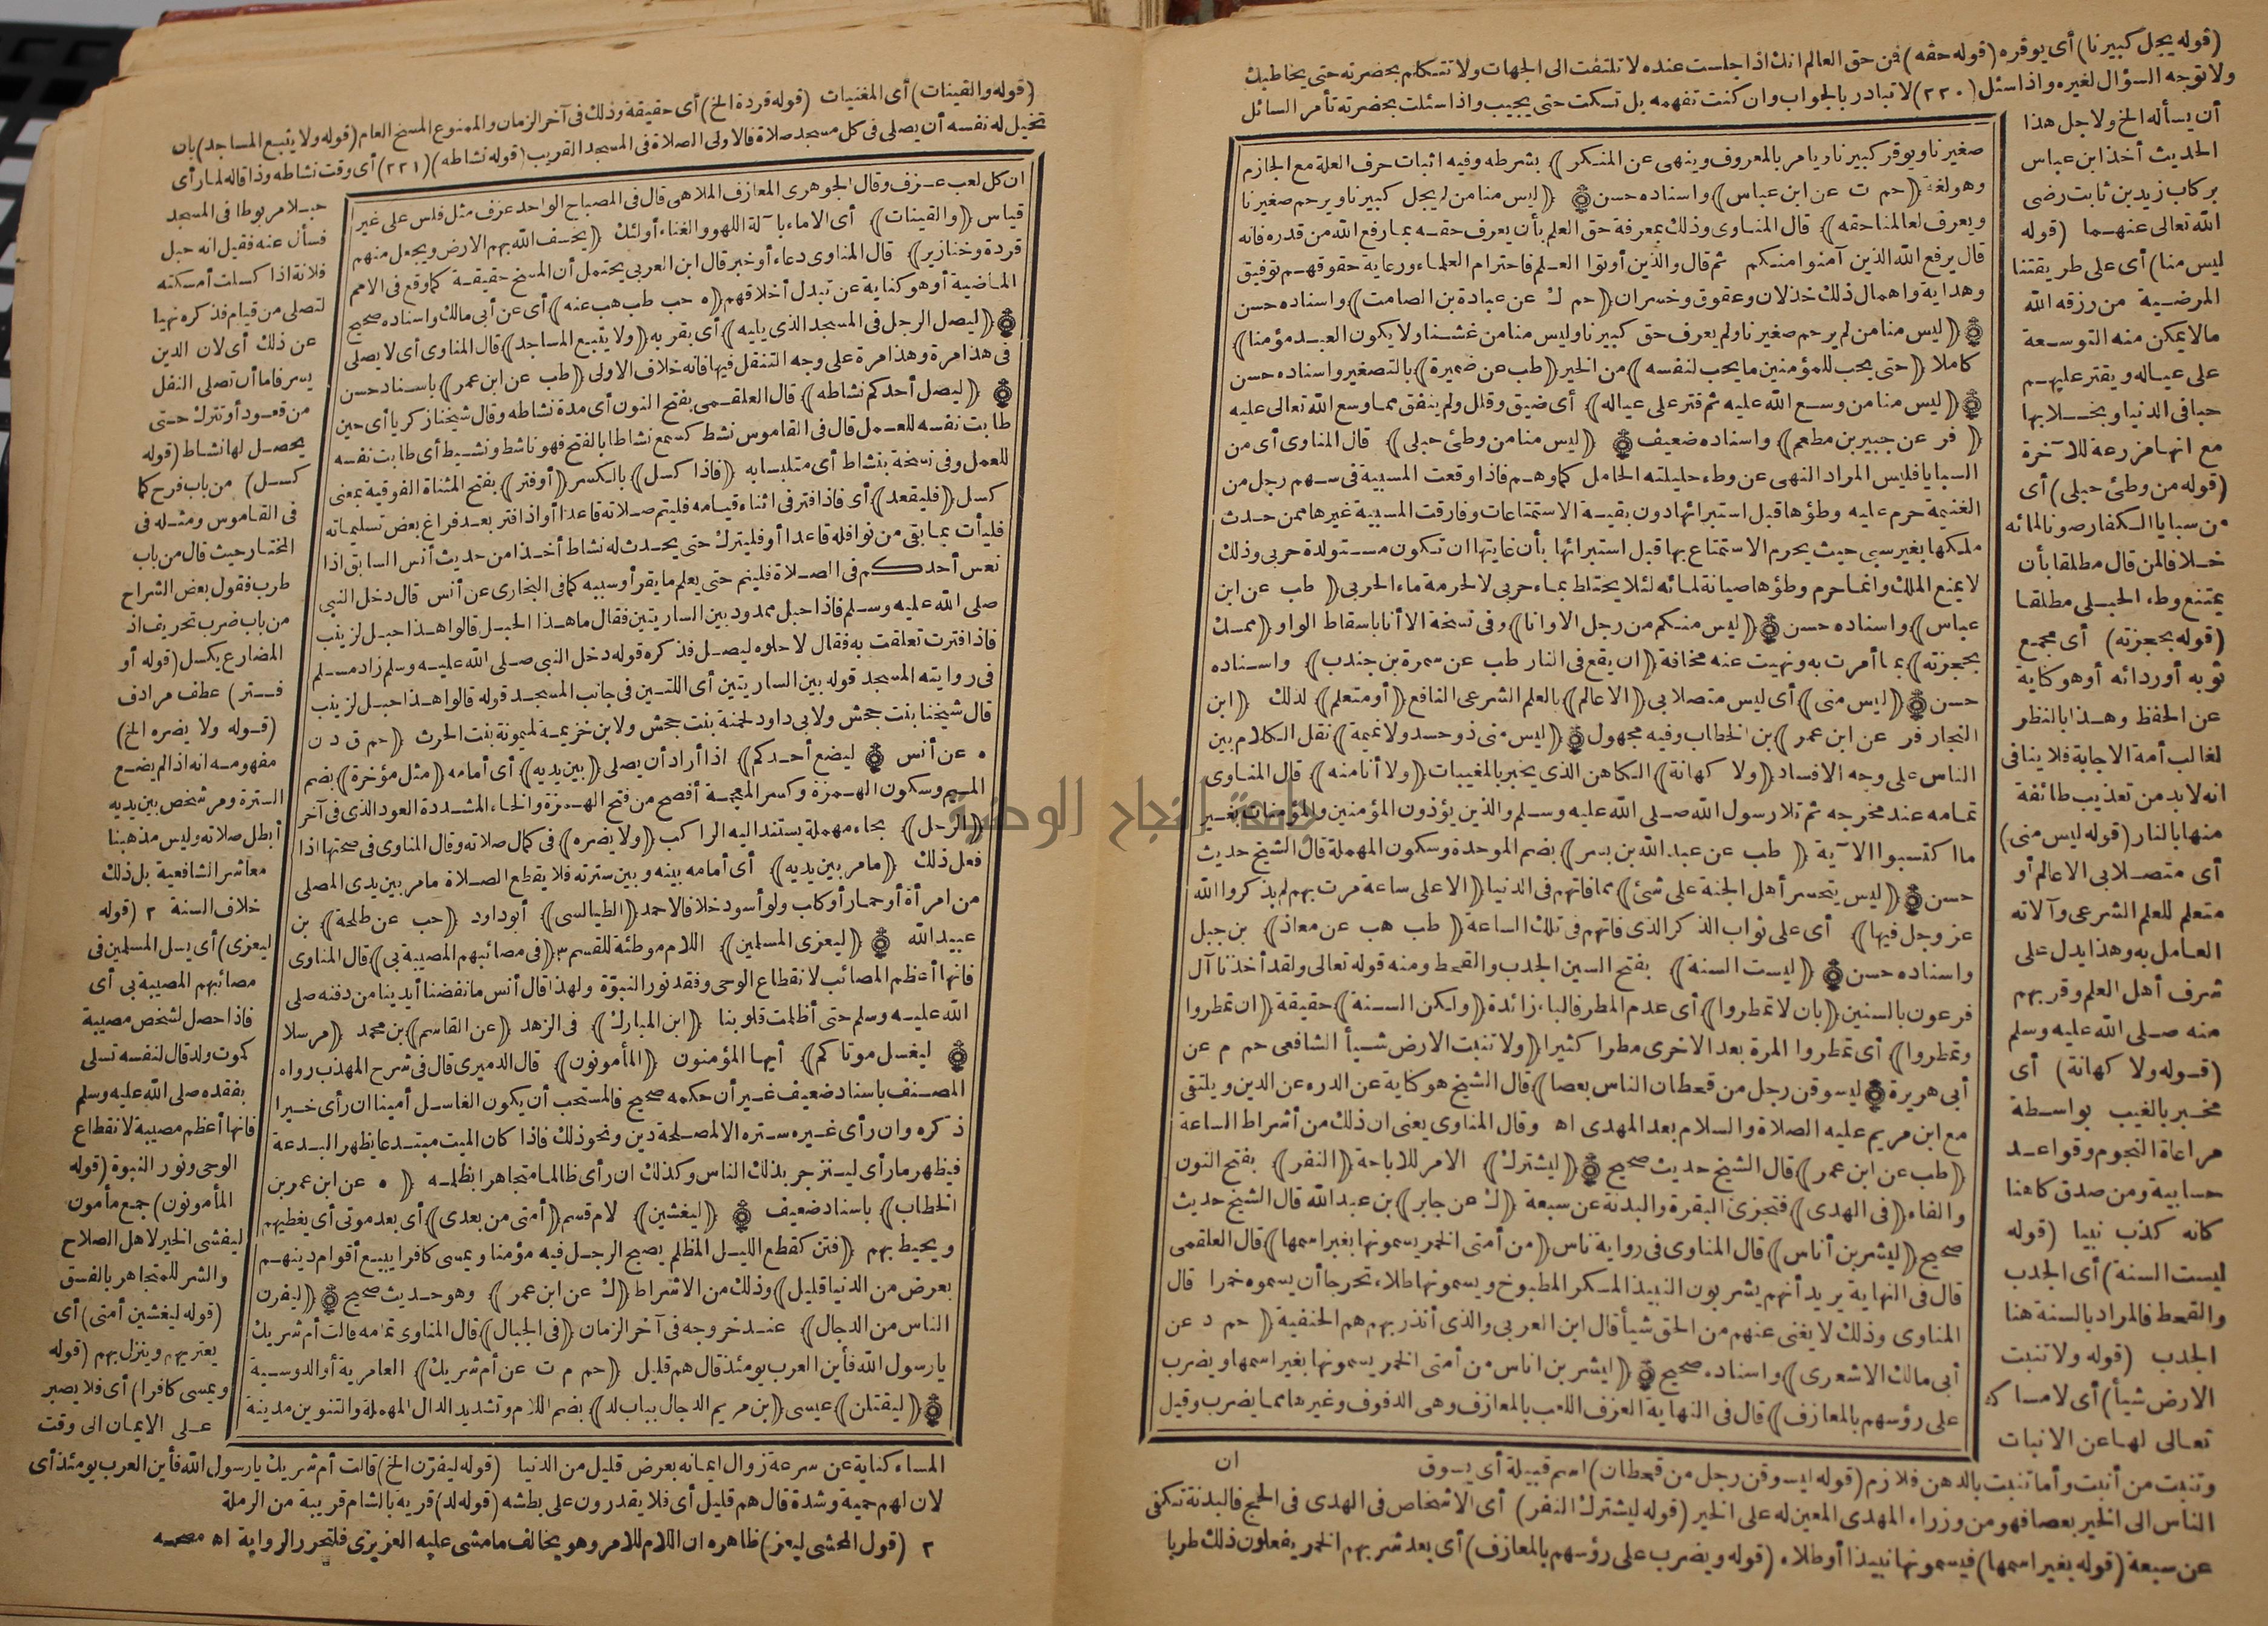 (قوله يجل كبيرنا) أى يوقره (قوله حقه) فمن حق العالم انك اذا جلست عنده لا تلتفت الى الجهات ولا تتكلم بحضرته حتى يخاطبك
ولا توجه السؤال لغيره واذا سئل (٢٢٠) لا تبادر بالجواب وان كنت تفهمه بل تسكت حتى يجيب واذا سئلت بحضرته تأمر السائل
أن يسأله الخ ولاجل هذا
الحديث أخذ ابن عباس
بركاب زيد بن ثابت رضى
الله تعالى عنهما (قوله
ليس منا) أى على طريقتنا
المرضية من رزقه الله
مالا يمكن منه التوسعة
على عياله ويقتر عليهم
حبا فى الدنيا وبخلا بها
مع انها مزرعة للآخرة
(قوله من وطئ حبلى) أى
من سبايا الكفار صونا لمائه
خلافا لمن قال مطلقا بأن
يمتنع وطء الحبلى مطلقا
(قوله بحجزته) أى مجمع
ثوبه أو ردائه أو هو كناية
عن الحفظ وهذا بالنظر
لغالب أمة الاجابة فلا ينافى
انه لابد من تعذيب طائفة
منها بالنار (قوله ليس منى)
أى متصلا بى الا عالم أو
متعلم للعلم الشرعى وآلاته
العامل به وهذا يدل على
شرف أهل العلم وقربهم
منه صلى الله عليه وسلم
(قوله ولا كهانة) أى
مخبر بالغيب بواسطة
مراعاة النجوم وقواعد
حسابية ومن صدق كاهنا
كانه كذب نبيا (قوله
ليست السنة) أى الجدب
والقحط فالمراد بالسنة هنا
الجدب (قوله ولا تنبت
الارض شيأ) أى لامساكه
تعالى لها عن الانبات
صغيرنا ويوقر كبيرنا ويأمر بالمعروف وينهى عن المنكر) بشرطه وفيه اثبات حرف العلة مع الجازم
وهو لغة (حم ت عن ابن عباس) واسناده حسن (ليس منا من لم يجل كبيرنا ويرحم صغيرنا
ويعرف لعالمنا حقه) قال المناوى وذلك بمعرفة حق العلم بأن يعرف حقه بما رفع الله من قدره فانه
قال يرفع الله الذين آمنوا منكم ثم قال والذين أوتوا العلم فاحترام العلماء ورعاية حقوقهم توفيق
وهداية واهمال ذلك خذلان وعقوق وخسران (حم ك عن عبادة بن الصامت) واسناده حسن
(ليس منا من لم يرحم صغيرنا ولم يعرف حق كبيرنا وليس منا من غشنا ولا يكون العبد مؤمنا)
كاملا (حتى يحب للمؤمنين ما يحب لنفسه) من الخير (طب عن ضميرة) بالتصغير واسناده حسن
(ليس منا من وسع الله عليه ثم قتر على عياله) أى ضيق وقلل ولم ينفق مما وسع الله تعالى عليه
(فر عن جبير بن مطعم) واسناده ضعيف (ليس منا من وطئ حبلى) قال المناوى أى من
السبايا فليس المراد النهى عن وطء حليلته الحامل كما وهم فاذا وقعت المسبية فى سهم رجل من
الغنيمة حرم عليه وطؤها قبل استبرائها دون بقية الاستمتاعات وفارقت المسبية غيرها ممن حدث
ملكها بغير سبى حيث يحرم الاستمتاع بها قبل استبرائها بأن غايتها ان تكون مستولدة حربى وذلك
لا يمنع الملك وانما حرم وطؤها صيانة لمائه لئلا يختلط بماء حربى لا لحرمة ماء الحربى (طب عن ابن
عباس) واسناده حسن (ليس منكم من رجل الا وانا) وفى نسخة الا أنا باسقاط الواو (ممسك
بحجزته) بما أمرت به ونهيت عنه مخافة (ان يقع فى النار طب عن سمرة بن جندب) واسناده
حسن (ليس منى) أى ليس متصلا بى (الا عالم) بالعلم الشرعى النافع (أو متعلم) لذلك (ابن
النجار فر عن ابن عمر) بن الخطاب وفيه مجهول (ليس منى ذو حسد ولا نميمة) نقل الكلام بين
الناس على وجه الافساد (ولا كهانة) الكاهن الذى يخبر بالمغيبات (ولا أنا منه) قال المناوى
تمامه عند مخرجه ثم تلا رسول الله صلى الله عليه وسلم والذين يؤذون المؤمنين والمؤمنات بغير
ما اكتسبوا الآية (طب عن عبد الله بن بسر) بضم الموحدة وسكون المهملة قال الشيخ حديث
حسن (ليس يتحسر أهل الجنة على شئ) مما فاتهم فى الدنيا (الا على ساعة مرت بهم لم يذكروا الله
عز وجل فيها) أى على ثواب الذكر الذى فاتهم فى تلك الساعة (طب هب عن معاذ) بن جبل
واسناده حسن (ليست السنة) بفتح السين الجدب والقحط ومنه قوله تعالى ولقد أخذنا آل
فرعون بالسنين (بان لا تمطروا) أى عدم المطر فالباء زائدة (ولكن السنة) حقيقة (ان تمطروا
وتمطروا) أى تمطروا المرة بعد الاخرى مطرا كثيرا (ولا تنبت الارض شيأ الشافعى حم م عن
أبى هريرة ليسوقن رجل من قحطان الناس بعصا) قال الشيخ هو كناية عن الدره عن الدين ويلتقى
مع ابن مريم عليه الصلاة والسلام بعد المهدى اه وقال المناوى يعنى ان ذلك من أشراط الساعة
(طب عن ابن عمر) قال الشيخ حديث صحيح (ليشترك) الامر للاباحة (النفر) بفتح النون
والفاء (فى الهدى) فتجزئ البقرة والبدنة عن سبعة (ك عن جابر) بن عبد الله قال الشيخ حديث
صحيح (ليشربن أناس) قال المناوى فى رواية ناس (من أمتى الخمر يسمونها بغير اسمها) قال العلقمى
قال فى النهاية يريد أنهم يشربون النبيذ المسكر المطبوخ ويسمونها طلاء تحرجا أن يسموه خمرا قال
المناوى وذلك لا يغنى عنهم من الحق شيأ قال ابن العربى والذى أنذر بهم هم الحنفية (حم د عن
أبى مالك الاشعرى) واسناده صحيح (ليشربن اناس من أمتى الخمر يسمونها بغير اسمها ويضرب
على رؤسهم بالمعازف) قال فى النهاية العزف اللعب بالمعازف وهى الدفوف وغيرها مما يضرب وقيل
ان
وتنبت من أنبت وأما تنبت بالدهن فلازم (قوله ليسوقن رجل من قحطان) اسم قبيلة أى يسوق
الناس الى الخير بعصا فهو من وزراء المهدى المعين له على الخير (قوله ليشترك النفر) أى الاشخاص فى الهدى فى الحج فالبدنة تكفى
عن سبعة (قوله بغير اسمها) فيسمونها نبيذا أو طلاء (قوله ويضرب على رؤسهم بالمعازف) أى بعد شربهم الخمر يفعلون ذلك طربا
(قوله والقينات) أى المغنيات (قوله قردة الخ) أى حقيقة وذلك فى آخر الزمان والممنوع المسخ العام (قوله ولا يتبع المساجد) بان
تخيل له نفسه أن يصلى فى كل مسجد صلاة فالاولى الصلاة فى المسجد القريب (قوله نشاطه) (٢٢١) أى وقت نشاطه وذا قاله لما رأى
حبلا مربوطا فى المسجد
فسأل عنه فقيل انه حبل
فلانة اذا كسلت أمسكته
لتصلى من قيام فذكره نهيا
عن ذلك أى لان الدين
يسر فاما أن تصلى النفل
من قعود أو تترك حتى
يحصل لها نشاط (قوله
كسل) من باب فرح كما
فى القاموس ومثله فى
المختار حيث قال من باب
طرب فقول بعض الشراح
من باب ضرب تحريف اذ
المضارع يكسل (قوله أو
فتر) عطف مرادف
(قوله ولا يضره الخ)
مفهومه انه اذا لم يضع
السترة ومر شخص بين يديه
أبطل صلاته وليس مذهبنا
معاشر الشافعية بل ذلك
خلاف السنة ٢ (قوله
ليعزى) أى يسل المسلمين فى
مصائبهم المصيبة بى أى
فاذا حصل لشخص مصيبة
كموت ولد قال لنفسه تسلى
بفقده صلى الله عليه وسلم
فانها أعظم مصيبة لانقطاع
الوحى ونور النبوة (قوله
المأمونون) جمع مأمون
ليفشى الخير لاهل الصلاح
والشر للمتجاهر بالفسق
(قوله ليغشين أمتى) أى
يعتريهم وينزل بهم (قوله
ويمسى كافرا) أى فلا يصبر
على الايمان الى وقت
ان كل لعب عزف وقال الجوهرى المعازف الملاهى قال فى المصباح الواحد عزف مثل فلس على غير
قياس (والقينات) أى الاماء بآلة اللهو والغناء أولئك (يخسف الله بهم الارض ويجعل منهم
قردة وخنازير) قال المناوى دعاء أو خبر قال ابن العربى يحتمل أن المسخ حقيقة كما وقع فى الامم
الماضية أو هو كناية عن تبدل أخلاقهم (ه حب طب هب عنه) أى عن أبى مالك واسناده صحيح
(ليصل الرجل فى المسجد الذى يليه) أى بقربه (ولا يتبع المساجد) قال المناوى أى لا يصلى
فى هذا مرة وهذا مرة على وجه التنقل فيها فانه خلاف الاولى (طب عن ابن عمر) باسناد حسن
(ليصل أحدكم نشاطه) قال العلقمى بفتح النون أى مدة نشاطه وقال شيخنا زكريا أى حين
طابت نفسه للعمل قال فى القاموس نشط كسمع نشاطا بالفتح فهو ناشط ونشيط أى طابت نفسه
للعمل وفى نسخة بنشاط أى متلبسا به (فاذا كسل) بالكسر (أو فتر) بفتح المثناة الفوقية بمعنى
كسل (فليقعد) أى فاذا فتر فى اثناء قيامه فليتم صلاته قاعدا أو اذا فتر بعد فراغ بعض تسليماته
فليأت بما بقى من نوافله قاعدا أو فليترك حتى يحدث له نشاط أخذا من حديث أنس السابق اذا
نعس أحدكم فى الصلاة فلينم حتى يعلم ما يقرأ وسببه كما فى البخارى عن أنس قال دخل النبى
صلى الله عليه وسلم فاذا حبل ممدود بين الساريتين فقال ما هذا الحبل قالوا هذا حبل لزينب
فاذا فترت تعلقت به فقال لا حلوه ليصل فذكره قوله دخل النبى صلى الله عليه وسلم زاد مسلم
فى روايته المسجد قوله بين الساريتين أى اللتين فى جانب المسجد قوله قالوا هذا حبل لزينب
قال شيخنا بنت جحش ولابى داود لحمنة بنت جحش ولابن خزيمة لميمونة بنت الحرث (حم ق د ن
ه عن أنس ليضع أحدكم) اذا أراد أن يصلى (بين يديه) أى أمامه (مثل مؤخرة) بضم
الميم وسكون الهمزة وكسر المعجمة أفصح من فتح الهمزة والخاء المشددة العود الذى فى آخر
(الرحل) بحاء مهملة يستند اليه الراكب (ولا يضره) فى كمال صلاته وقال المناوى فى صحتها اذا
فعل ذلك (ما مر بين يديه) أى أمامه بينه وبين سترته فلا يقطع الصلاة ما مر بين يدى المصلى
من امرأة أو حمار أو كلب ولو أسود خلافا لاحمد (الطيالسى) أبو داود (حب عن طلحة) بن
عبيد الله (ليعزى المسلمين) اللام موطئة للقسم ٣ (فى مصائبهم المصيبة بى) قال المناوى
فانها أعظم المصائب لانقطاع الوحى وفقد نور النبوّة ولهذا قال أنس ما نفضنا أيدينا من دفنه صلى
الله عليه وسلم حتى أظلمت قلوبنا (ابن المبارك) فى الزهد (عن القاسم) بن محمد (مرسلا
ليغسل موتاكم) أيها المؤمنون (المأمونون) قال الدميرى قال فى شرح المهذب رواه
المصنف باسناد ضعيف غير أن حكمه صحيح فالمستحب أن يكون الغاسل أمينا ان رأى خيرا
ذكره وان رأى غيره ستره الا لمصلحة دين ونحو ذلك فاذا كان الميت مبتدعا يظهر البدعة
فيظهر ما رأى لينزجر بذلك الناس وكذلك ان رأى ظالما متجاهرا بظلمه (ه عن ابن عمر بن
الخطاب) باسناد ضعيف (ليغشين) لام قسم (أمتى من بعدى) أى بعد موتى أى يغطيهم
ويحيط بهم (فتن كقطع الليل المظلم يصبح الرجل فيه مؤمنا ويمسى كافرا يبيع أقوام دينهم
بعرض من الدنيا قليل) وذلك من الاشراط (ك عن ابن عمر) وهو حديث صحيح (ليفرن
الناس من الدجال) عند خروجه فى آخر الزمان (فى الجبال) قال المناوى تمامه قالت أم شريك
يارسول الله فأين العرب يومئذ قال هم قليل (حم م ت عن أم شريك) العامرية أو الدوسية
(ليقتلن) عيسى (بن مريم الدجال بباب لد) بضم اللام وتشديد الدال المهملة والتنوين مدينة
المساء كناية عن سرعة زوال ايمانه بعرض قليل من الدنيا (قوله ليفرّن الخ) قالت أم شريك يارسول الله فأين العرب يومئذ أى
لان لهم حمية وشدة قال هم قليل أى فلا يقدرون على بطشه (قوله لد) قرية بالشام قريبة من الرملة
٢ (قول المحشى ليعز) ظاهره ان اللام للامر وهو يخالف ما مشى عليه العزيزى فلتحرر الرواية اه مصححه
جامعة النجاح الوطنية